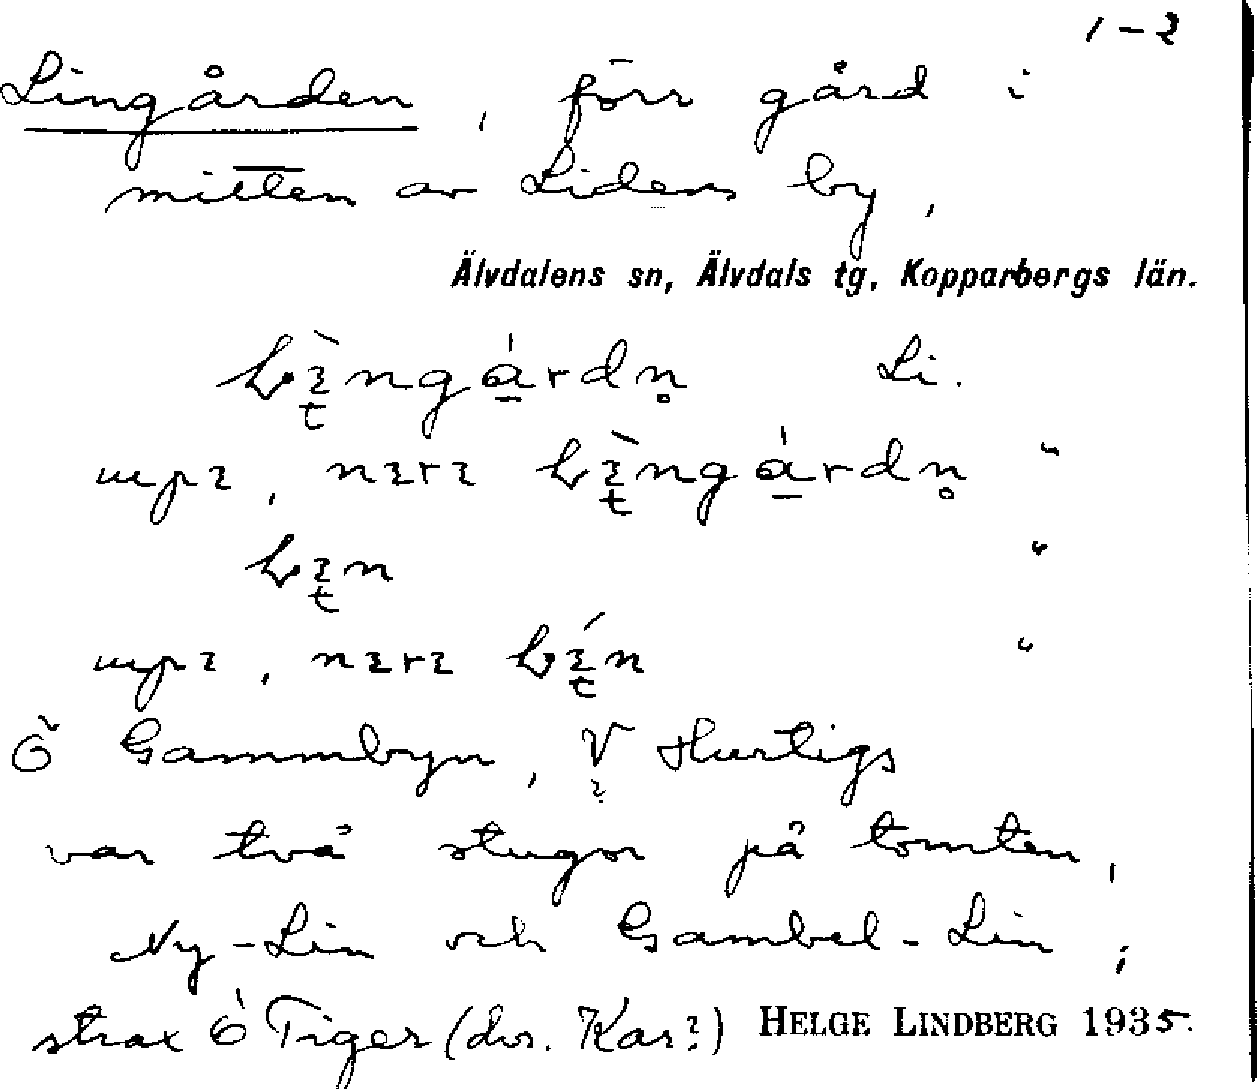 1-2
Lingården, förr gård i
mitten av Lidens by,
Älvdalens sn, Älvdals tg, Kopparbergs län.
Li.
"
"
"
Ö Gammbyn, V Hurtigs
var två stugor på tomten,
Ny-Lin och Gambel-Lin,
strax Ö Tiger (dvs. Kar?) HELGE LINDBERG 1935.